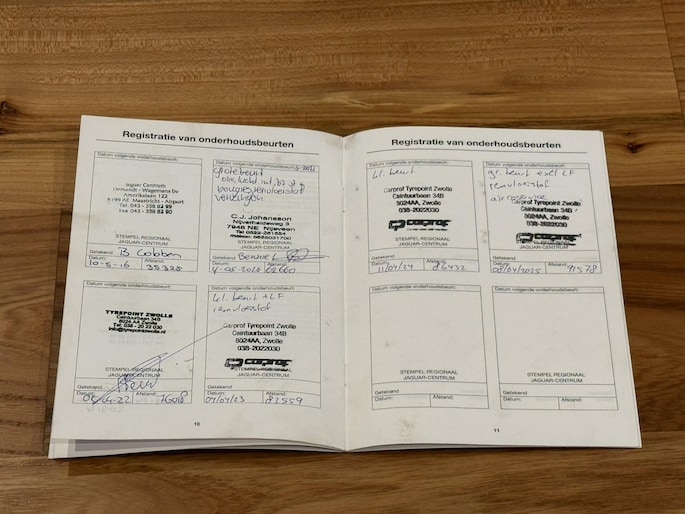 Registratie van onderhoudsbeurten
Datum volgende onderhoudsbeurt:
Jaguar Centrum
Wagemans bv
Amerikalaan 122
6199 AE Maastricht - Airport
Tel. 043 - 358 82 99
Fax 043 - 358 82 90
STEMPEL REGIONAAL
JAGUAR-CENTRUM
Getekend B Cobben
Datum: Afstand:
10-5-16 35328
Datum volgende onderhoudsbeurt:
grote beurt
remvloeistof
vervangen
C.J. Johanson
Nijverheidsweg 3
7948 NE Nijeveen
Tel 0522-281554
STEMPEL REGIONAAL
JAGUAR-CENTRUM
Getekend
Datum: Afstand:
4-05-2020 62660
Datum volgende onderhoudsbeurt:
TYREPOINT ZWOLLE
Ceintuurbaan 34B
8024 AA Zwolle
Tel: 038 - 20 22 030
info@tyrepointzwolle.nl
STEMPEL REGIONAAL
JAGUAR-CENTRUM
Getekend:
Datum: Afstand:
Datum volgende onderhoudsbeurt:
kl beurt + LF
remvloeistof
Carprof Tyrepoint Zwolle
Ceintuurbaan 34B
8024AA, Zwolle
038-2022030
carprof
STEMPEL REGIONAAL
JAGUAR-CENTRUM
Getekend
Datum: Afstand:
04/04/23 82559
10
Registratie van onderhoudsbeurten
Datum volgende onderhoudsbeurt:
kl. beurt
Carprof Tyrepoint Zwolle
Ceintuurbaan 34B
8024AA, Zwolle
038-2022030
carprof
STEMPEL REGIONAAL
JAGUAR-CENTRUM
Getekend
Datum: Afstand:
11/04/24 86432
Datum volgende onderhoudsbeurt:
gr. beurt excl LF
remvloeistof
aircoservice
Carprof Tyrepoint Zwolle
Ceintuurbaan 34B
8024AA, Zwolle
038-2022030
carprof
STEMPEL REGIONAAL
JAGUAR-CENTRUM
Getekend
Datum: Afstand:
08/04/2025 91578
Datum volgende onderhoudsbeurt:
STEMPEL REGIONAAL
JAGUAR-CENTRUM
Getekend
Datum: Afstand:
Datum volgende onderhoudsbeurt:
STEMPEL REGIONAAL
JAGUAR-CENTRUM
Getekend
Datum: Afstand:
11